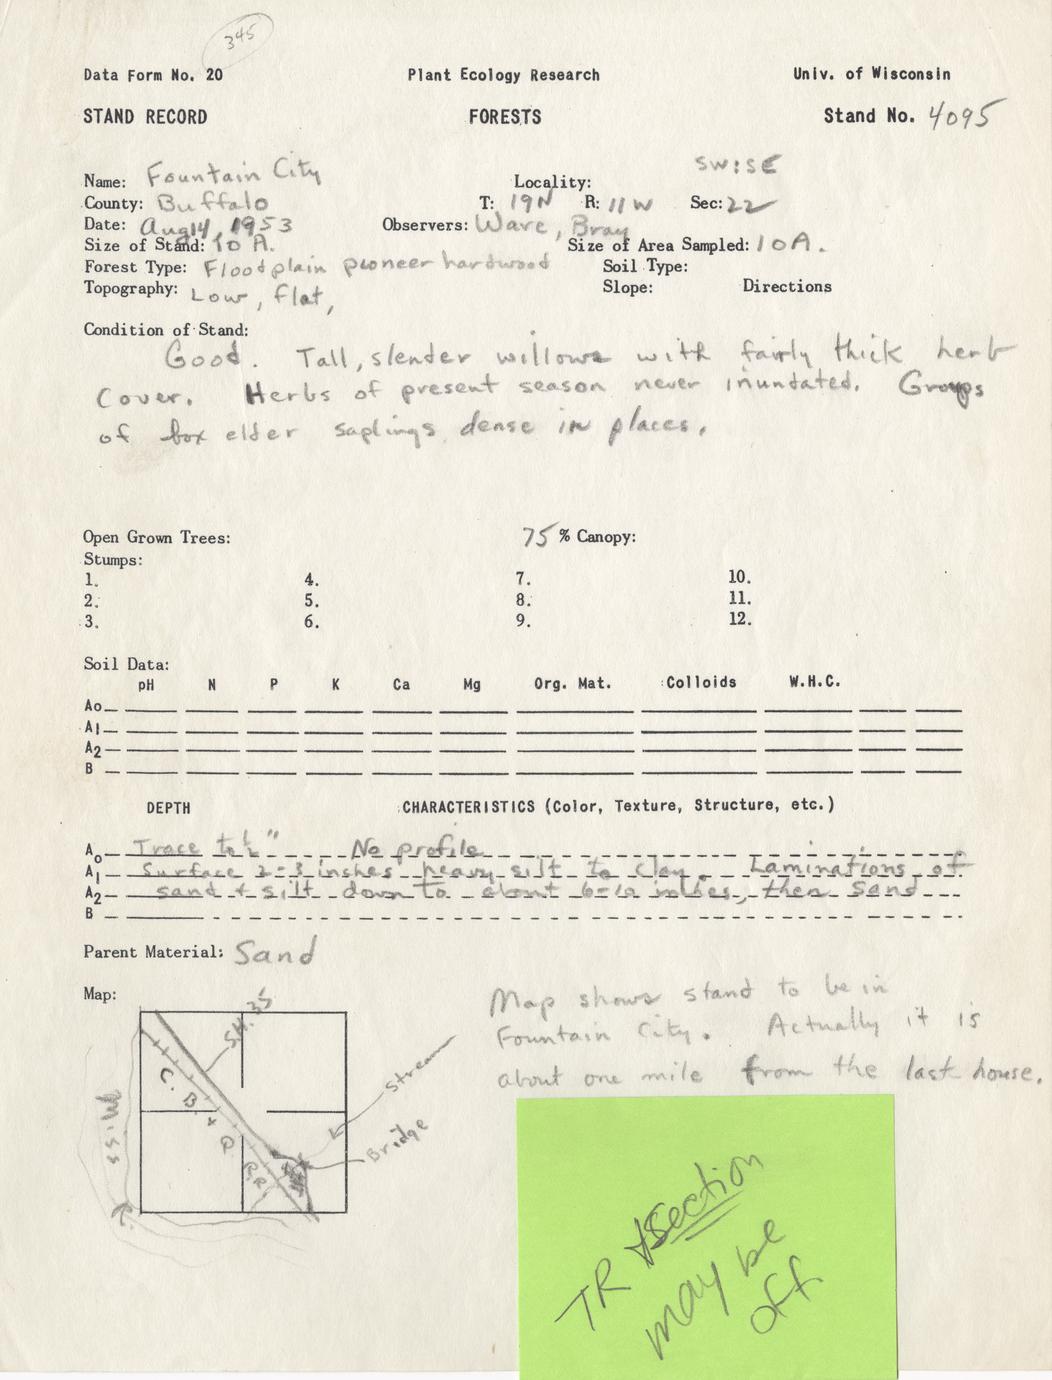 345
Data Form No. 20 Plant Ecology Research Univ. of Wisconsin
STAND RECORD FORESTS Stand No. 4095
SW:SE
Name: Fountain City Locality:
County: Buffalo T: 19N R: 11W Sec: 22
Date: Aug 14, 1953 Observers: Ware, Bray
Size of Stand: 10 A. Size of Area Sampled: 10A.
Forest Type: Floodplain pioneer hardwood Soil Type:
Topography: Low, flat, Slope: Directions
Condition of Stand:
Good. Tall, slender willows with fairly thick herb
Cover. Herbs of present season never inundated. Groups
of box elder saplings dense in places.
Open Grown Trees: 75 % Canopy:
Stumps:
1. 4. 7. 10.
2. 5. 8. 11.
3. 6. 9. 12.
Soil Data:
pH N P K Ca Mg Org. Mat. Colloids W.H.C.
Ao
A1
A2
B
DEPTH CHARACTERISTICS (Color, Texture, Structure, etc.)
Ao Trace to ½" No profile
A1 Surface 2-3 inches heavy silt to clay. Laminations of
A2 sand + silt down to about 6-10 inches, then sand
B
Parent Material: Sand
Map:
S.H. 35
C. B. + Q R.R.
Miss
Stream
Bridge
Map shows stand to be in
Fountain City. Actually it is
about one mile from the last house.
TR + Section
may be
off